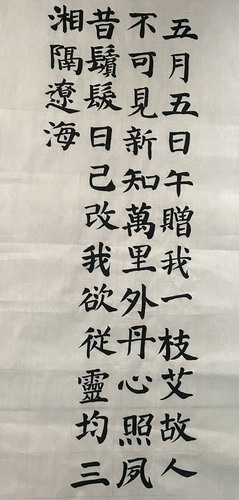 五月五日午贈我一枝艾故人
不可見新知萬里外丹心照夙
昔鬚髮日己改我欲従靈均三
湘隔遼海